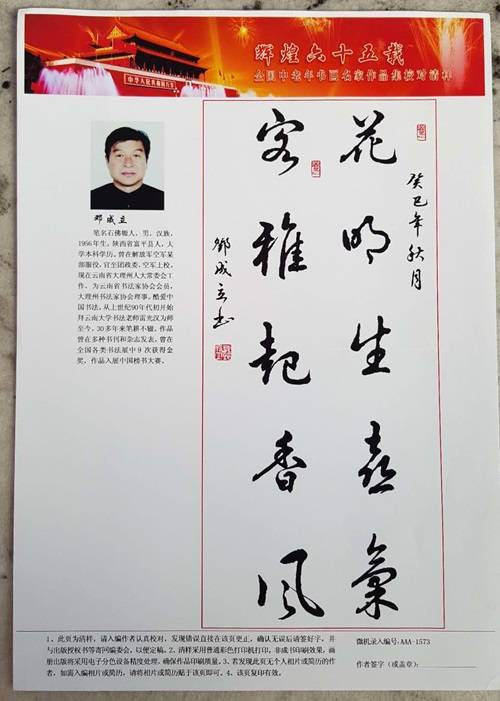 辉煌六十五载
全国中老年书画名家作品集校对清样
中华人民共和国万岁
邓成立
笔名石佛伽人，男，汉族，
1956年生，陕西省富平县人，大
学本科学历，曾在解放军空军某
部服役，官至团政委，空军上校，
现在云南省大理州人大常委会工
作，为云南省书法家协会会员，
大理州书法家协会理事，酷爱中
国书法，从上世纪90年代初开始
拜云南大学书法老师雷光汉为师
至今，30多年来笔耕不辍，作品
曾在多种书刊和杂志发表，曾在
全国各类书法展中9次获得金
奖，作品入展中国榜书大赛。
癸巳年秋月
花明生喜氣
客雅起香风
鄧成立书
1、此页为清样，请入编作者认真校对，发现错误直接在该页更正，确认无误后请签好字，并
与出版授权书等寄回编委会，以便定稿。2、清样采用普通彩色打印机打印，非成书印刷效果，画
册出版将采用电子分色设备精度处理，确保作品印刷质量。3、若发现此页无个人相片或简历的作
者，如需入编相片或简历，请将相片或简历贴于该页即可。4、该页复印有效。
微机录入编号:AAA-1573
作者签字（或盖章）: